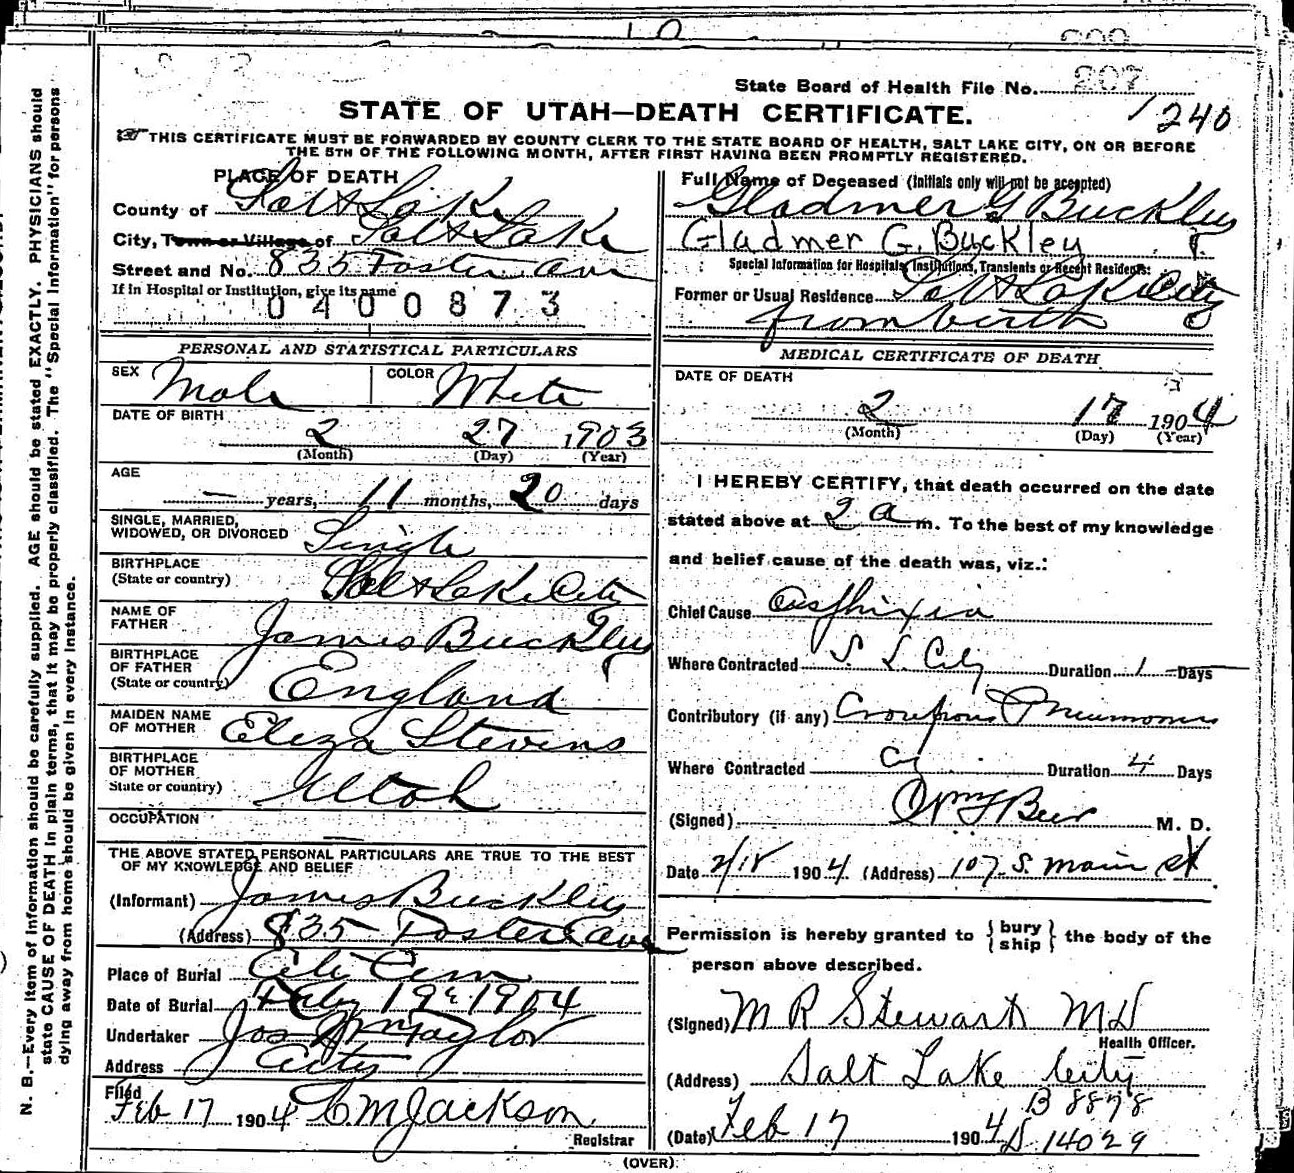 State Board of Health File No. 207
1240
STATE OF UTAH—DEATH CERTIFICATE.
THIS CERTIFICATE MUST BE FORWARDED BY COUNTY CLERK TO THE STATE BOARD OF HEALTH, SALT LAKE CITY, ON OR BEFORE
THE 5TH OF THE FOLLOWING MONTH, AFTER FIRST HAVING BEEN PROMPTLY REGISTERED.
PLACE OF DEATH
County of Salt Lake
City, Town or Village of Salt Lake
Street and No. 835 Foster Ave
If in Hospital or Institution, give its name
0400873
Full Name of Deceased (Initials only will not be accepted)
Gladmer G Buckley
Gladmer G. Buckley
Special Information for Hospitals, Institutions, Transients or Recent Residents:
Former or Usual Residence Salt Lake City
from birth
PERSONAL AND STATISTICAL PARTICULARS
SEX Male COLOR White
DATE OF BIRTH
2 27 1903
(Month) (Day) (Year)
AGE
— years, 11 months, 20 days
SINGLE, MARRIED,
WIDOWED, OR DIVORCED Single
BIRTHPLACE
(State or country) Salt Lake City
NAME OF
FATHER James Buckley
BIRTHPLACE
OF FATHER
(State or country) England
MAIDEN NAME
OF MOTHER Eliza Stevens
BIRTHPLACE
OF MOTHER
State or country) Utah
OCCUPATION
—
THE ABOVE STATED PERSONAL PARTICULARS ARE TRUE TO THE BEST
OF MY KNOWLEDGE AND BELIEF
(Informant) James Buckley
(Address) 835 Foster Ave
Place of Burial City Cem
Date of Burial Feby 19 1904
Undertaker Jos Wm Taylor
Address City
Filed
Feb 17 1904 C M Jackson
Registrar
MEDICAL CERTIFICATE OF DEATH
DATE OF DEATH
2 17 1904
(Month) (Day) (Year)
I HEREBY CERTIFY, that death occurred on the date
stated above at 2 a m. To the best of my knowledge
and belief cause of the death was, viz.:
Chief Cause Asphixia
Where Contracted S. L. City Duration 1 Days
Contributory (if any) Croupous Pneumonia
Where Contracted Duration 4 Days
(Signed) Beer M. D.
Date 2/18 1904. (Address) 107 S. Main St
Permission is hereby granted to { bury ship } the body of the
person above described.
(Signed) M R Stewart MD
Health Officer.
(Address) Salt Lake City
B 8878
(Date) Feb 17 1904 D 14029
(OVER)
N. B.—Every item of information should be carefully supplied. AGE should be stated EXACTLY. PHYSICIANS should
state CAUSE OF DEATH in plain terms, that it may be properly classified. The "Special Information" for persons
dying away from home should be given in every instance.